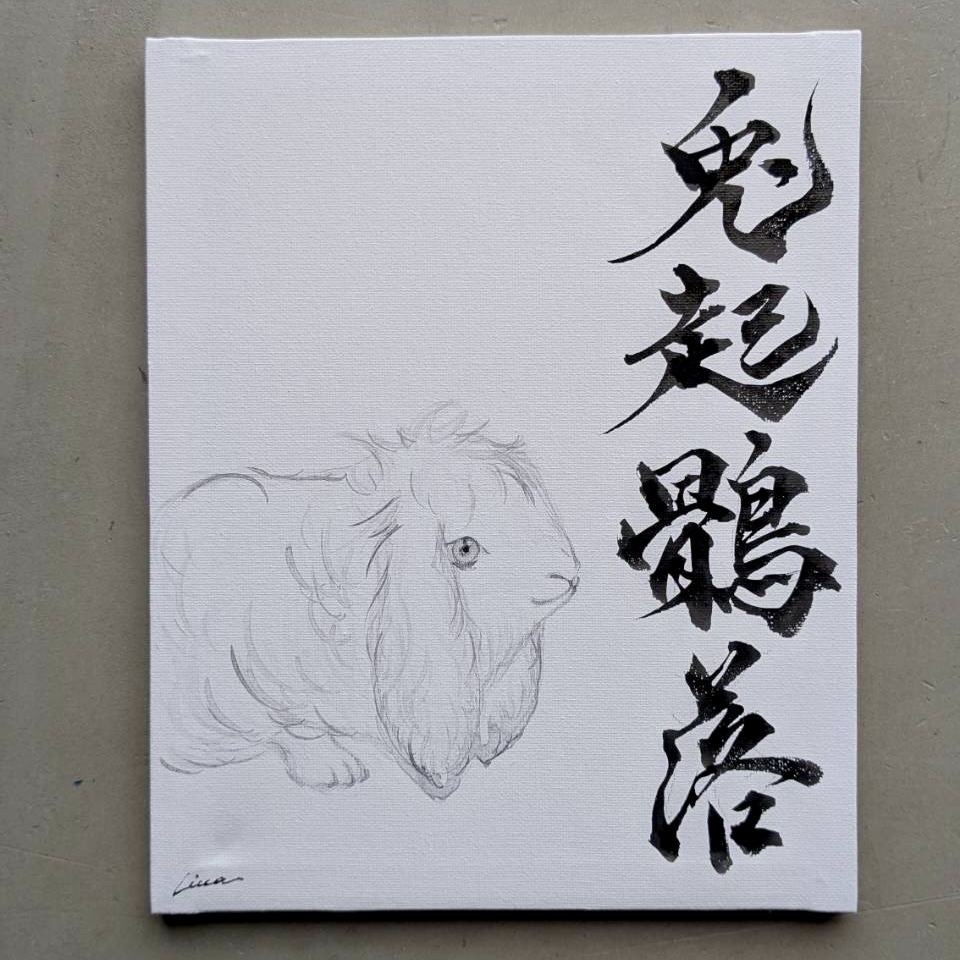 兎起鶻落
Lina